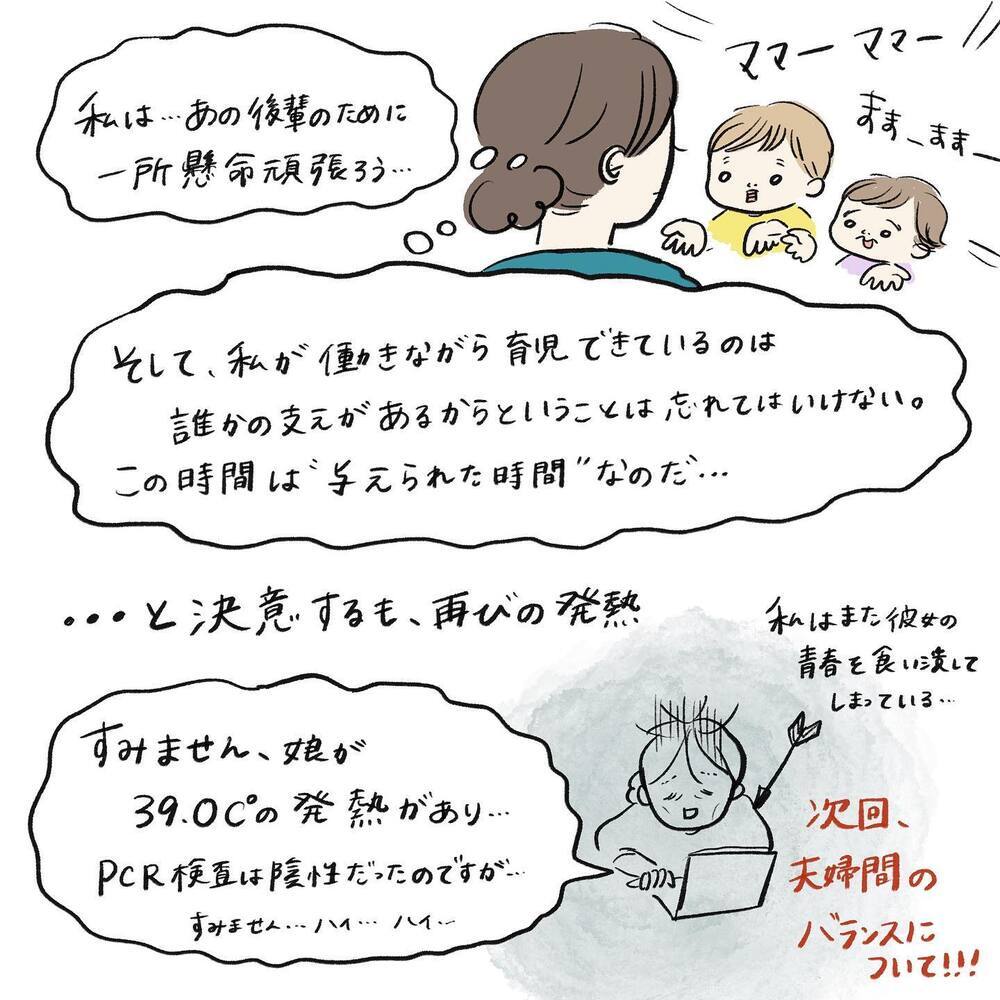 私は…あの後輩のために
一所懸命頑張ろう…
ママー ママー
ますーますー
そして、私が働きながら育児できているのは
誰かの支えがあるからということは忘れてはいけない。
この時間は“与えられた時間”なのだ…
…と決意するも、再びの発熱
私はまた彼女の
青春を食い潰して
しまっている…
すみません、娘が
39.0C°の発熱があり…
PCR検査は陰性だったのですが…
すみません…ハイ…ハイ…
次回、
夫婦間の
バランスに
ついて!!!